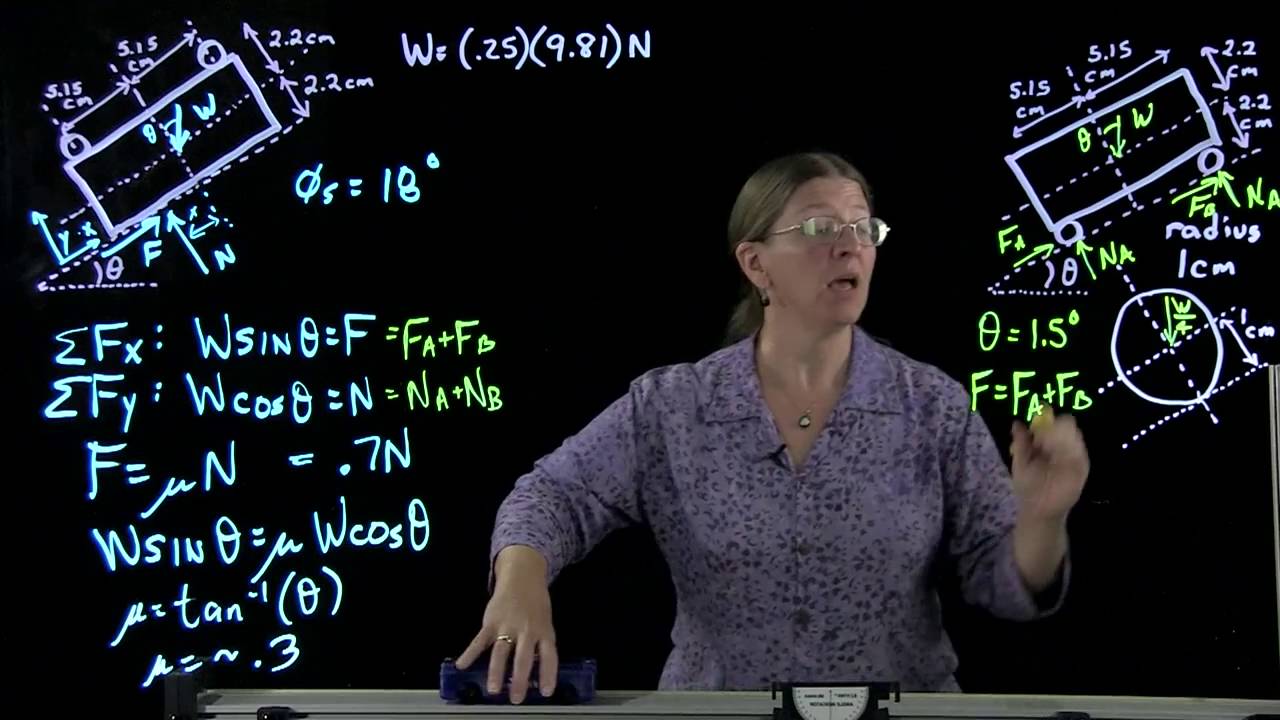 5.15 cm
5.15 cm
2.2 cm
2.2 cm
θ W
y x
F
x
N
θ
W = (.25)(9.81) N
φs = 18°
ΣFx : W SIN θ = F = FA + FB
ΣFy : W cos θ = N = NA + NB
F = μN = .7N
W SIN θ = μ W cos θ
μ = tan⁻¹(θ)
μ = ~ .3
5.15 cm
5.15 cm
2.2 cm
2.2 cm
θ W
FB NA
FA NA
θ
radius
1cm
θ = 1.5°
W/4
1 cm
F = FA + FB